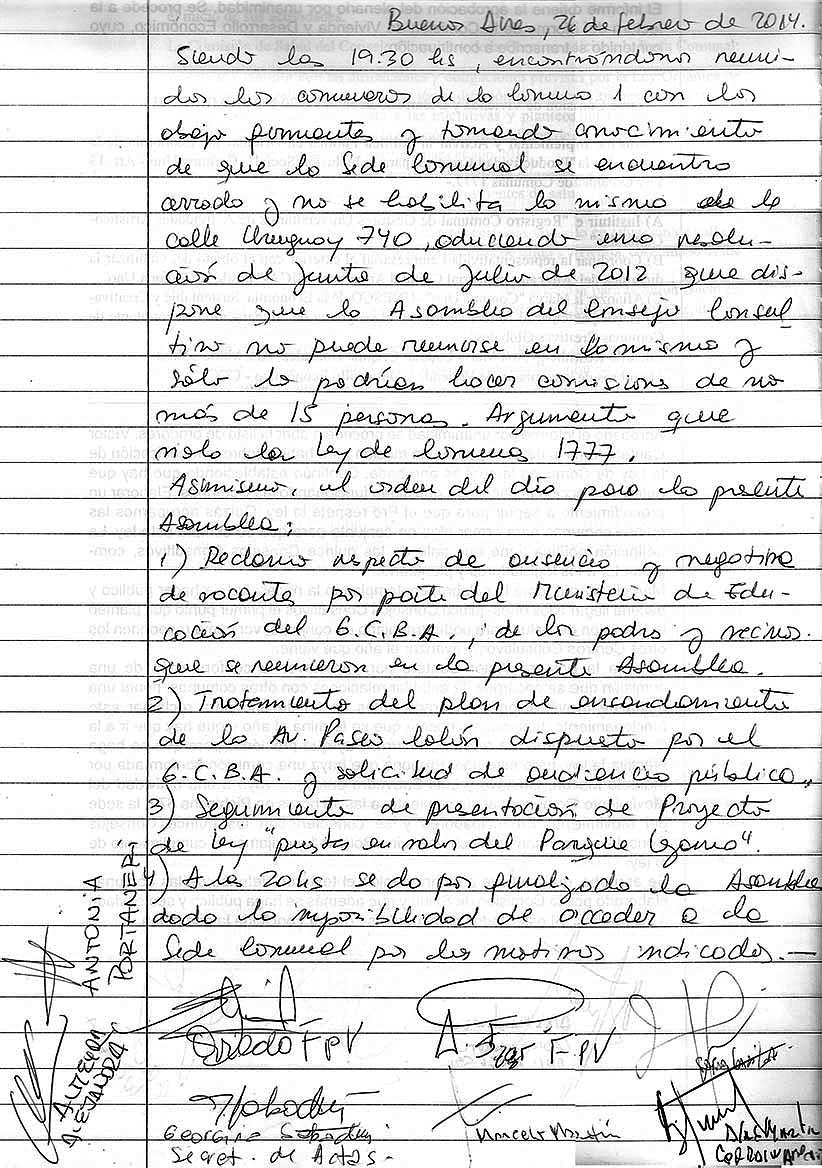 Buenos Aires, 26 de febrero de 2014.
Siendo las 19.30 hs, encontrándonos reuni-
dos los comuneros de la Comuna 1 con los
abajo firmantes y tomando conocimiento
de que la Sede Comunal se encuentra
cerrada y no se habilita la misma de la
calle Uruguay 740, aduciendo una resolu-
ción de Junta de Julio de 2012 que dis-
pone que la Asamblea del Consejo Consul
tivo no puede reunirse en la misma y
sólo lo podrían hacer comisiones de no
más de 15 personas. Argumento que
viola la Ley de Comunas 1777
Asimismo, el orden del día para la presente
Asamblea:
1) Reclamo respecto de ausencia y negativa
de vacantes por parte del Ministerio de Edu-
cación del G.C.B.A., de los padres y vecinos.
que se reunieron en la presente Asamblea.
2) Tratamiento del plan de encarrilamiento
de la Av. Paseo Colón dispuesto por el
G.C.B.A. y solicitud de audiencia pública,,
3) Seguimiento de presentación de Proyecto
de ley "puesta en valor del Parque Lezama".
4) A las 20 hs se da por finalizada la Asamblea
dada la imposibilidad de acceder a la
Sede Comunal por los motivos indicados.—
ANTONIA
PORTANERI
ALEJANDRA
FPV
FPV
Georgina
Secret. de Actas-
Marcelo Martín